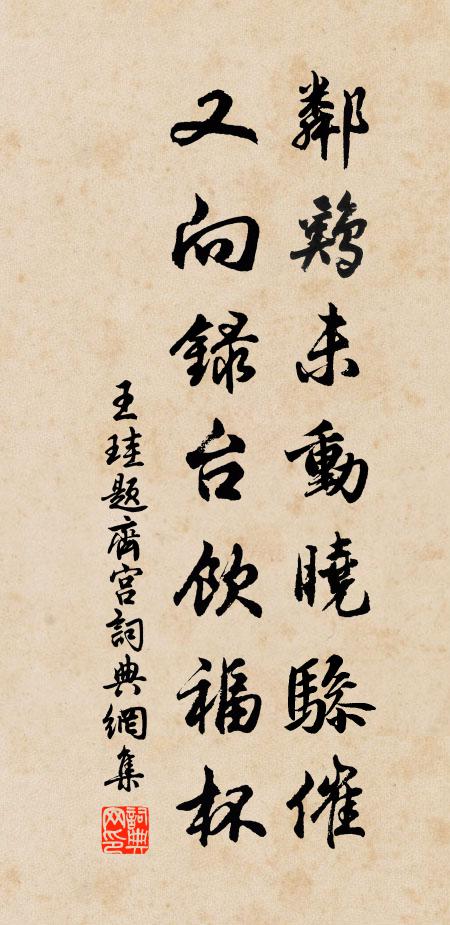 鄰鷄未動曉驂催
又向録台飲福杯
王珪題齋宮詞典網集
詞典网印